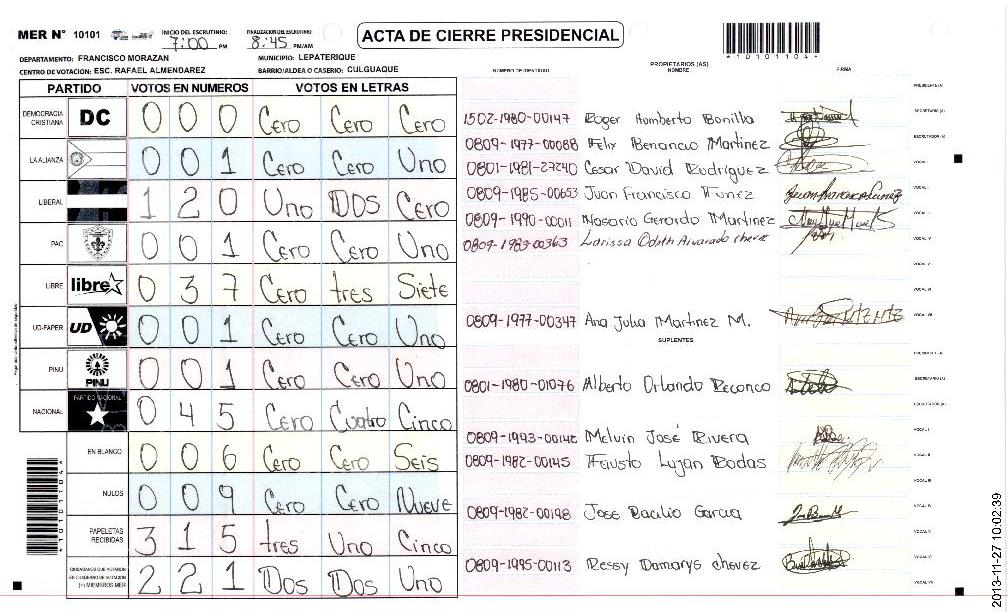 MER N° 10101 INICIO DEL ESCRUTINIO: 7:00 PM FINALIZACION DEL ESCRUTINIO: 8:45 PM/AM
ACTA DE CIERRE PRESIDENCIAL
*10101104*
DEPARTAMENTO: FRANCISCO MORAZAN MUNICIPIO: LEPATERIQUE
CENTRO DE VOTACION: ESC. RAFAEL ALMENDAREZ BARRIO/ALDEA O CASERIO: CULGUAQUE
PARTIDO VOTOS EN NUMEROS VOTOS EN LETRAS
DEMOCRACIA CRISTIANA DC 0 0 0 Cero Cero Cero
LA ALIANZA 0 0 1 Cero Cero Uno
LIBERAL 1 2 0 Uno Dos Cero
PAC 0 0 1 Cero Cero Uno
LIBRE libre 0 3 7 Cero tres Siete
UD-FAPER UD 0 0 1 Cero Cero Uno
PINU PINU 0 0 1 Cero Cero Uno
NACIONAL PARTIDO NACIONAL 0 4 5 Cero Cuatro Cinco
EN BLANCO 0 0 6 Cero Cero Seis
NULOS 0 0 9 Cero Cero Nueve
PAPELETAS RECIBIDAS 3 1 5 tres Uno Cinco
CIUDADANOS QUE VOTARON EN CUADERNO DE VOTACION (+) MIEMBROS MER 2 2 1 Dos Dos Uno
*10101104*
NUMERO DE IDENTIDAD PROPIETARIOS (AS) NOMBRE FIRMA
PRESIDENTE (A)
1502-1980-00147 Roger Humberto Bonilla SECRETARIO (A)
0809-1977-00088 Felix Benancio Martinez ESCRUTADOR (A)
0801-1981-27240 Cesar David Rodriguez VOCAL I
0809-1985-00653 Juan Francisco Funez VOCAL II
0809-1990-00011 Nosario Gerardo Martinez VOCAL III
0809-1983-00363 Larissa Odath Alvarado chevez VOCAL IV
VOCAL V
VOCAL VI
0809-1977-00347 Ana Julia Martinez M. VOCAL VII
SUPLENTES
PRESIDENTE (A)
0801-1980-01076 Alberto Orlando Reconco SECRETARIO (A)
ESCRUTADOR (A)
0809-1993-00142 Melvin José Rivera VOCAL I
0809-1982-00145 Fausto Lujan Rodas VOCAL II
VOCAL III
0809-1982-00198 Jose Bacilio Garcia VOCAL IV
VOCAL V
0809-1995-00113 Ressy Damarys chevez VOCAL VI
VOCAL VII
2013-11-27 10:02:39